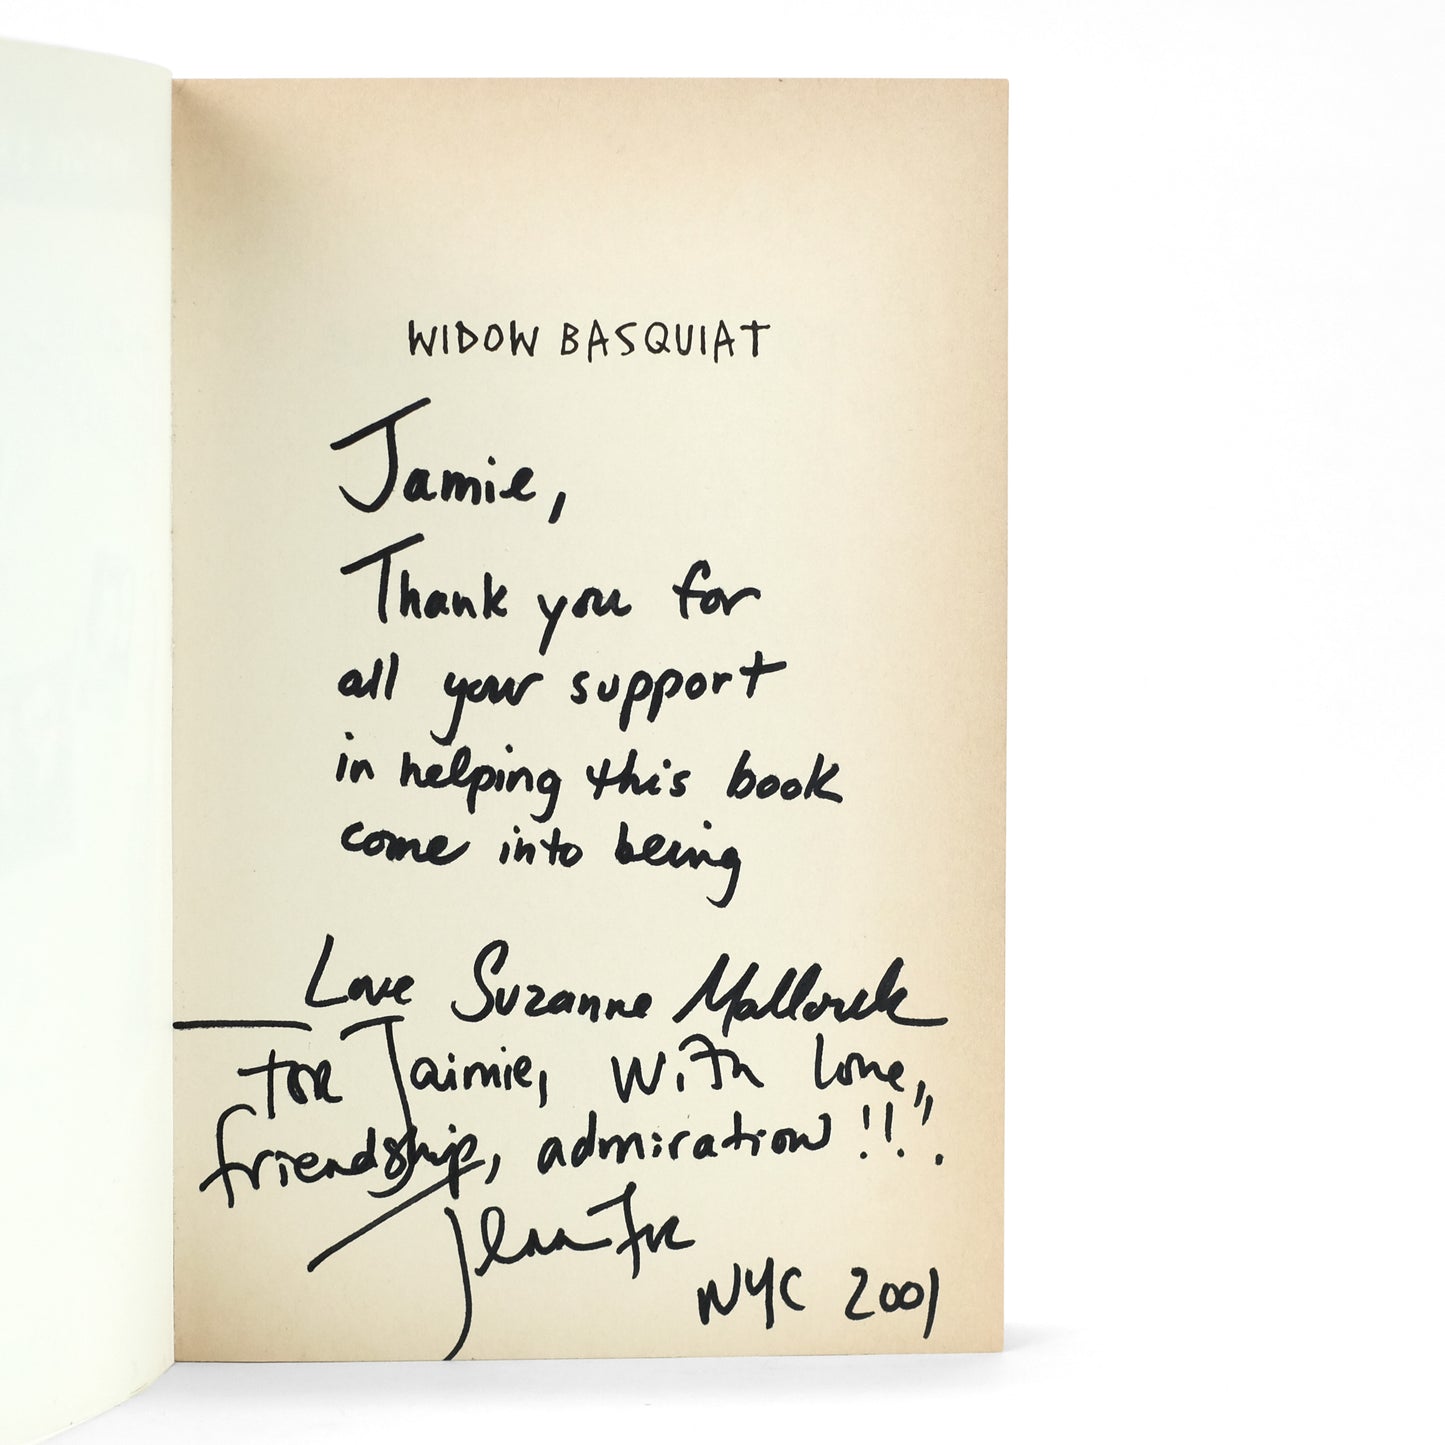 WIDOW BASQUIAT
Jamie,
Thank you for
all your support
in helping this book
come into being
Love Suzanne Mallouk
For Jaimie, with love,
friendship, admiration!!!
Jennifer
NYC 2001